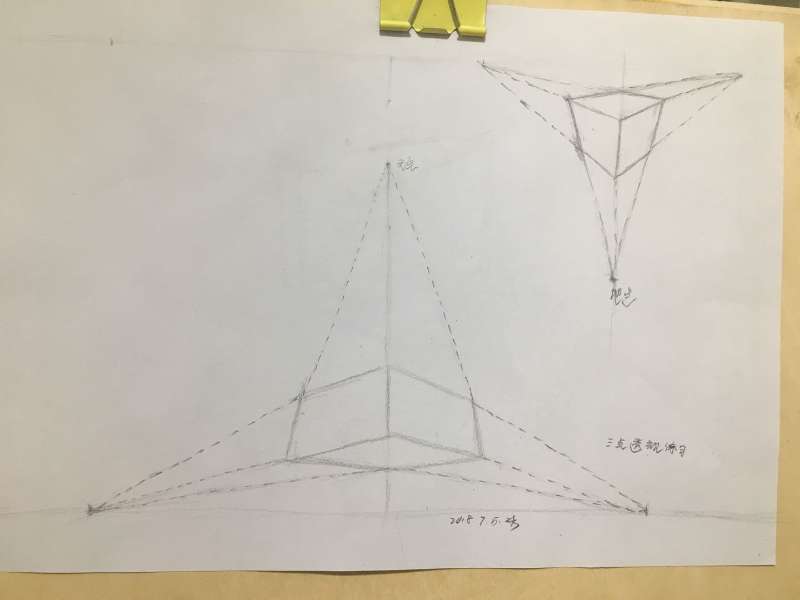 天点
地点
三点透视练习
2018.7.5.